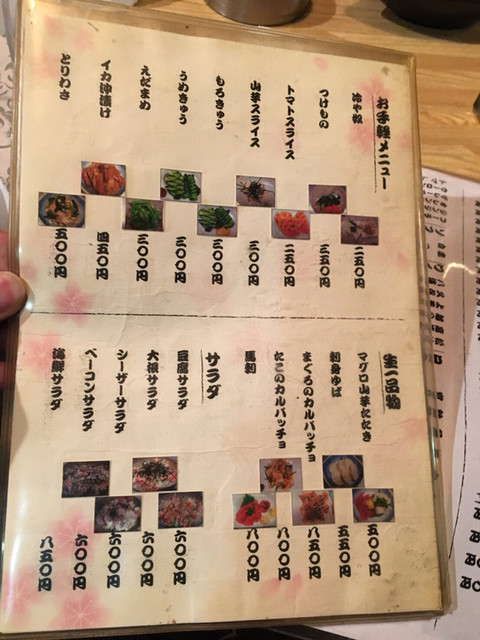 お手軽メニュー
冷や奴 二五〇円
つけもの 二五〇円
トマトスライス 二五〇円
山芋スライス 三〇〇円
もろきゅう 三〇〇円
うめきゅう 三〇〇円
えだまめ 三〇〇円
イカ沖漬け 四五〇円
とりわさ 五〇〇円
生一品物
マグロ山芋たたき 五〇〇円
刺身ゆば 五五〇円
まぐろのカルパッチョ 八五〇円
たこのカルパッチョ 八〇〇円
馬刺 八〇〇円
サラダ
豆腐サラダ 六〇〇円
大根サラダ 六〇〇円
シーザーサラダ 六〇〇円
ベーコンサラダ 六〇〇円
海鮮サラダ 八五〇円